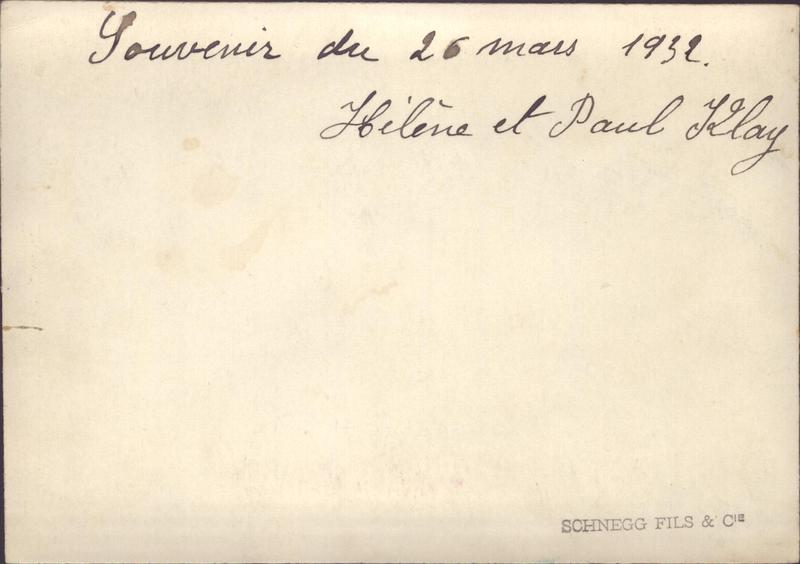 Souvenir du 26 mars 1932.
Hélène et Paul Klay
SCHNEGG FILS & CIE